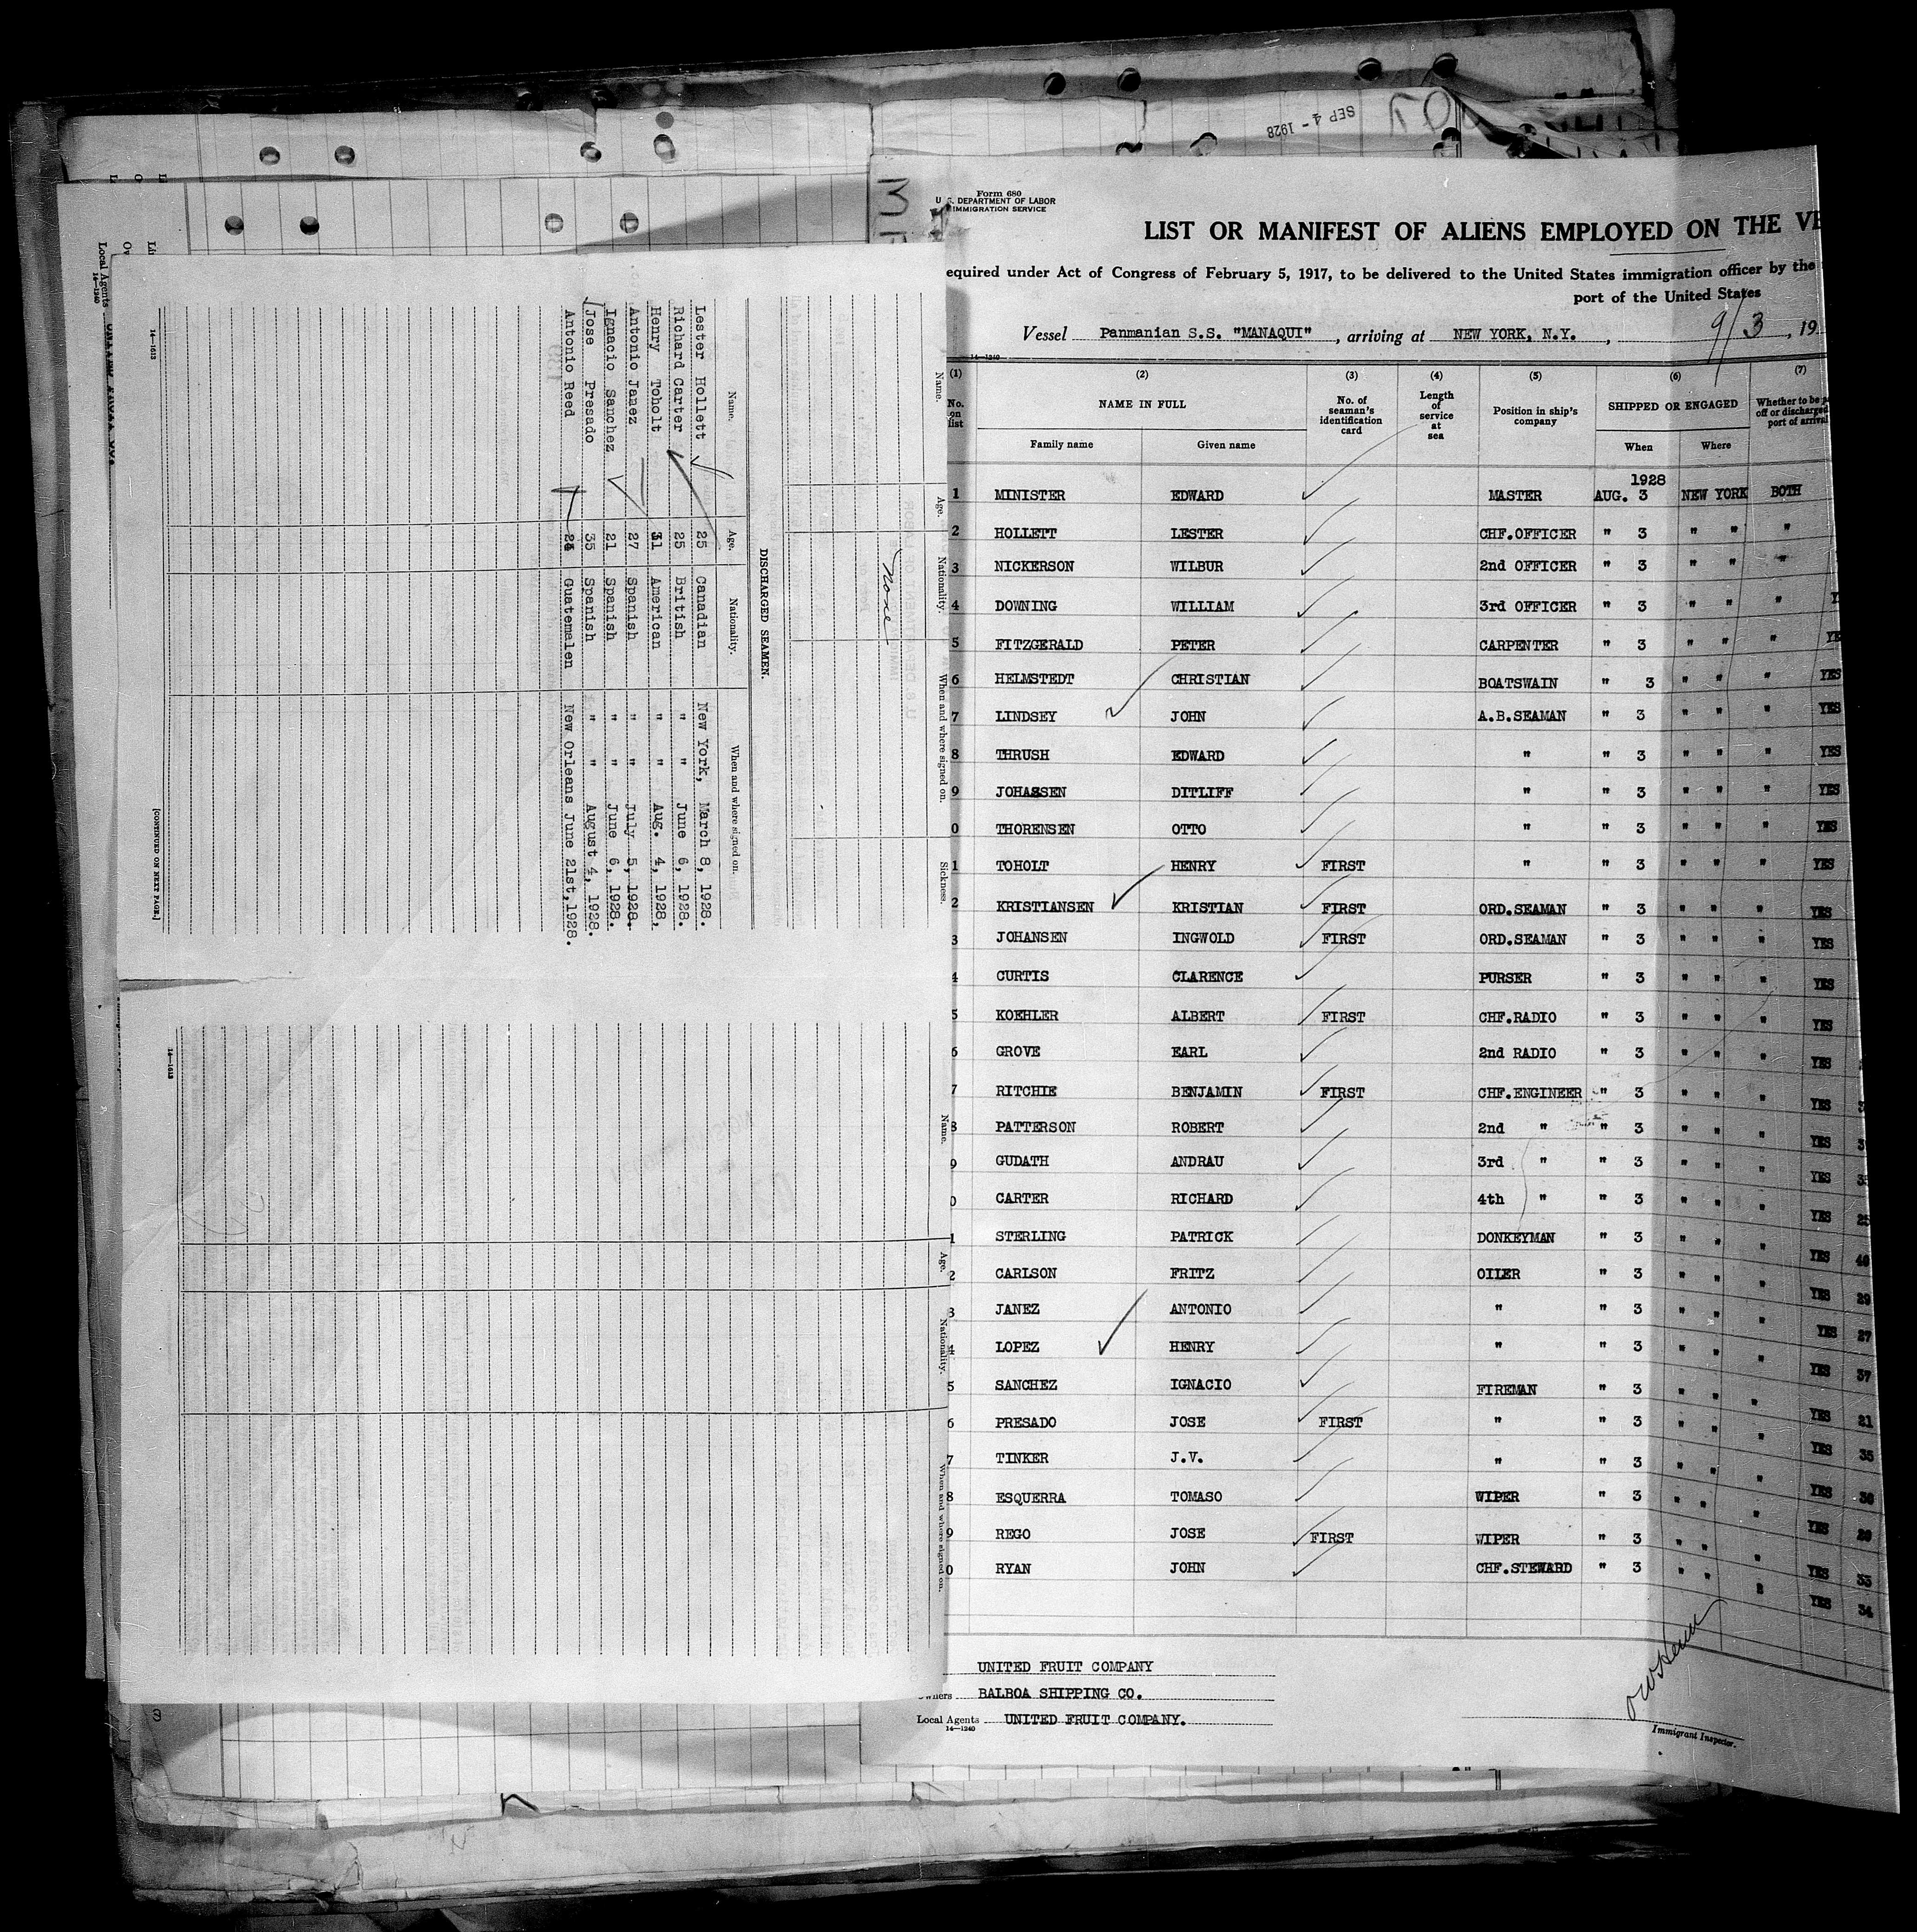 SEP 4 - 1928
Form 680
U. S. DEPARTMENT OF LABOR
IMMIGRATION SERVICE
LIST OR MANIFEST OF ALIENS EMPLOYED ON THE VE
equired under Act of Congress of February 5, 1917, to be delivered to the United States immigration officer by the
port of the United States
Vessel Panmanian S.S. "MANAQUI", arriving at NEW YORK, N.Y., 9/3, 19
14-1240
(1) (2) (3) (4) (5) (6) (7)
No. on list NAME IN FULL No. of seaman's identification card Length of service at sea Position in ship's company SHIPPED OR ENGAGED Whether to be off or discharged port of arrival
Family name Given name When Where
1928
1 MINISTER EDWARD MASTER AUG. 3 NEW YORK BOTH
2 HOLLETT LESTER CHF.OFFICER " 3 " " "
3 NICKERSON WILBUR 2nd OFFICER " 3 " " "
4 DOWNING WILLIAM 3rd OFFICER " 3 " " " Y
5 FITZGERALD PETER CARPENTER " 3 " " " YE
6 HELMSTEDT CHRISTIAN BOATSWAIN " 3 " " " YES
7 LINDSEY JOHN A.B.SEAMAN " 3 " " " YES
8 THRUSH EDWARD " " 3 " " " YES
9 JOHASSEN DITLIFF " " 3 " " " YES
0 THORENSEN OTTO " " 3 " " " YES
1 TOHOLT HENRY FIRST " " 3 " " " YES
2 KRISTIANSEN KRISTIAN FIRST ORD.SEAMAN " 3 " " " YES
3 JOHANSEN INGWOLD FIRST ORD.SEAMAN " 3 " " " YES
4 CURTIS CLARENCE PURSER " 3 " " " YES
5 KOEHLER ALBERT FIRST CHF.RADIO " 3 " " " YES
6 GROVE EARL 2nd RADIO " 3 " " " YES
7 RITCHIE BENJAMIN FIRST CHF.ENGINEER " 3 " " " YES 3
8 PATTERSON ROBERT 2nd " " 3 " " " YES 3
9 GUDATH ANDRAU 3rd " " 3 " " " YES 3
0 CARTER RICHARD 4th " " 3 " " " YES 25
1 STERLING PATRICK DONKEYMAN " 3 " " " YES 40
2 CARLSON FRITZ OILER " 3 " " " YES 29
3 JANEZ ANTONIO " " 3 " " " YES 27
4 LOPEZ HENRY " " 3 " " " YES 37
5 SANCHEZ IGNACIO FIREMAN " 3 " " " YES 21
6 PRESADO JOSE FIRST " " 3 " " " YES 35
7 TINKER J.V. " " 3 " " " YES 30
8 ESQUERRA TOMASO WIPER " 3 " " " YES 29
9 REGO JOSE FIRST WIPER " 3 " " " YES 33
0 RYAN JOHN CHF.STEWARD " 3 " " " YES 34
UNITED FRUIT COMPANY
Owners BALBOA SHIPPING CO.
Local Agents UNITED FRUIT COMPANY.
14-1240
Immigrant Inspector.
Name. Age. Nationality. When and where signed on. Sickness.
None
DISCHARGED SEAMEN.
Name. Age. Nationality. When and where signed on.
Lester Hollett 25 Canadian New York, March 8, 1928.
Richard Carter 25 British " " June 6, 1928.
Henry Toholt 31 American " " Aug. 4, 1928,
Antonio Janez 27 Spanish " " July 5, 1928.
Ignacio Sanchez 21 Spanish " " June 6, 1928.
Jose Presado 35 Spanish " " August 4, 1928.
Antonio Reed Guatemalen New Orleans June 21st,1928.
14-1613
[CONTINUED ON NEXT PAGE.]
Name. Age. Nationality. When and where signed on.
14-1613
Local Agents
14-1240